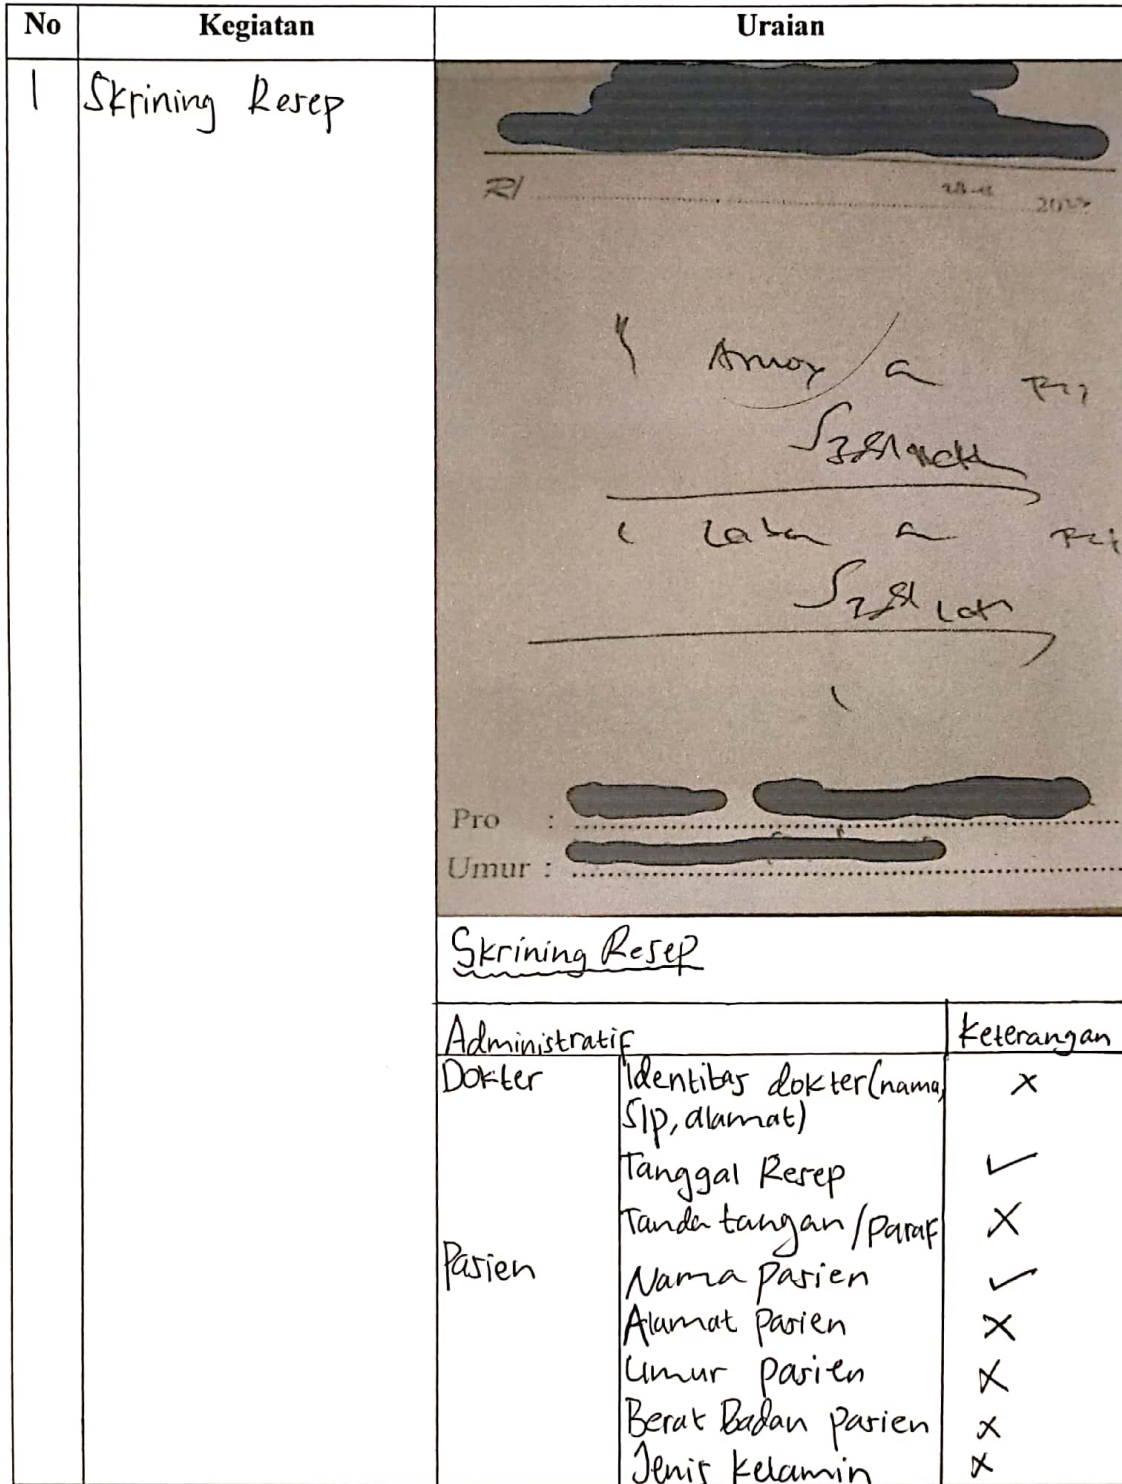 No Kegiatan Uraian
1 Skrining Resep
R/ 2023
Amox
S
S
Pro :
Umur :
Skrining Resep
Administratif Keterangan
Dokter Identitas dokter (nama, SIP, alamat) x
Tanggal Resep ✓
Tanda tangan/paraf X
Pasien Nama pasien ✓
Alamat pasien X
Umur pasien X
Berat Badan pasien x
Jenis kelamin x